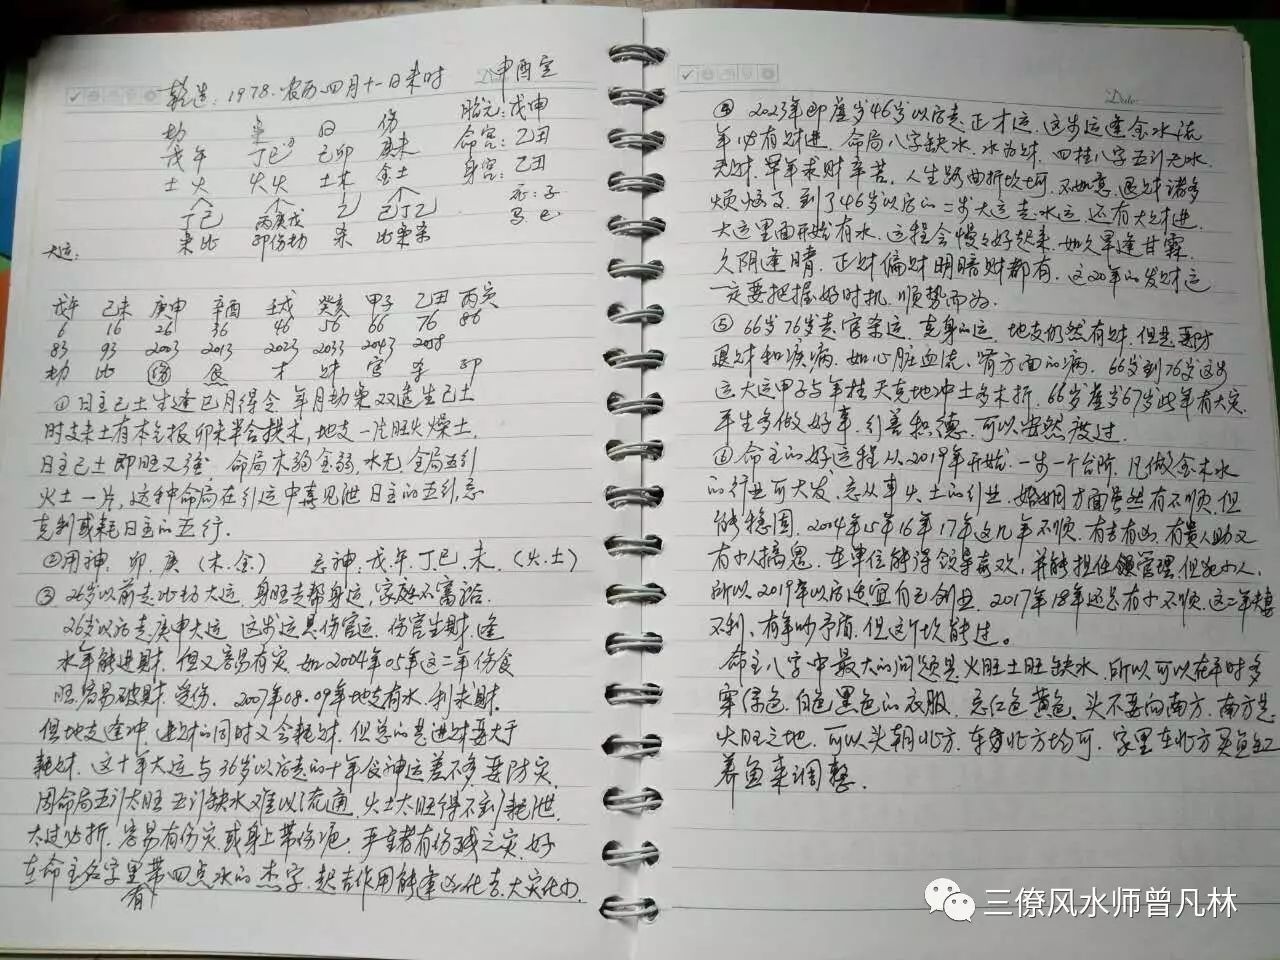 乾造：1978.农历四月十一日未时
申酉空
劫 枭 日 伤
胎元：戊申
戊午 丁巳 己卯 辛未
命宫：乙丑
土火 火火 土木 金土
身宫：乙丑
丁己 丙庚戊 乙 己丁乙
枭比 印伤劫 杀 比枭杀
大运：
戊午 己未 庚申 辛酉 壬戌 癸亥 甲子 乙丑 丙寅
6 16 26 36 46 56 66 76 86
83 93 2003 2013 2023 2033 2043 2058
劫 比 伤 食 才 财 官 杀 印
①日主己土生逢巳月得令，年月劫枭双透生己土
时支未土有本气根，卯未半合拱木，地支一片旺火燥土，
日主己土即旺又强，命局木弱金弱，水无，全局五行
火土一片，这种命局在行运中喜见泄日主的五行，忌
克制或耗日主的五行．
②用神．卯．庚（木．金） 忌神．戊午．丁巳．未．（火．土）
③26岁以前走比劫大运．身旺走帮身运，家庭不富裕．
26岁以后走庚申大运．这步运是伤官运．伤官生财．逢
水年能进财．但又容易有灾．如2004年05年这二年伤食
旺容易破财．受伤．2007年08.09年地支有水．利求财．
但地支逢冲．进财的同时又会耗财．但总的是进财要大于
耗财．这十年大运与36岁以后走的十年食神运差不多．要防灾．
因命局五行太旺．五行缺水难以流通．火土太旺得不到耗泄．
太过必折．容易有伤灾．或身上带伤疤．严重者有伤残之灾．好
在命主名字里有带四点水的杰字．起吉作用能逢凶化吉．大灾化小．
④2023年即虚岁46岁以后走正才运．这步运逢金水流
年必有财进．命局八字缺水．水为财．四柱八字五行无水．
无财．早年求财辛苦．人生路曲折坎坷．不如意．退财诸多
烦恼多．到了46岁以后的二步大运走水运．还有大财进．
大运里面开始有水．运程会慢慢好起来．如久旱逢甘霖．
久阴逢晴．正财偏财明暗财都有．这20年的发财运
一定要把握好时机．顺势而为．
⑤66岁76岁走官杀运．克身的运．地支仍然有财．但是要防
退财和疾病．如心脏血流．肾方面的病．66岁到76岁这步
运大运甲子与年柱天克地冲土多木折．66岁虚岁67岁此年有大灾．
平生多做好事．引善积德．可以安然度过．
命主的好运程从2019年开始．一步一个台阶．凡做金木水
的行业可大发．忌从事火．土的行业．婚姻方面虽然有不顺．但
能稳固．2004年15年16年17年这几年不顺．有吉有凶．有贵人助又
有小人捣鬼．在单位能得领导喜欢．并能担任领管理．但犯小人．
所以2019年以后适宜自己创业．2017年18年还是有少不顺．这二年夫妻
不利．有争吵矛盾．但这个坎能过。
命主八字中最大的问题是火旺土旺缺水．所以可以在平时多
穿绿色．白色黑色的衣服．忌红色黄色．头不要向南方．南方是
火旺之地．可以头朝北方．东方北方均可．家里在北方买鱼缸
养鱼来调整．
三僚风水师曾凡林